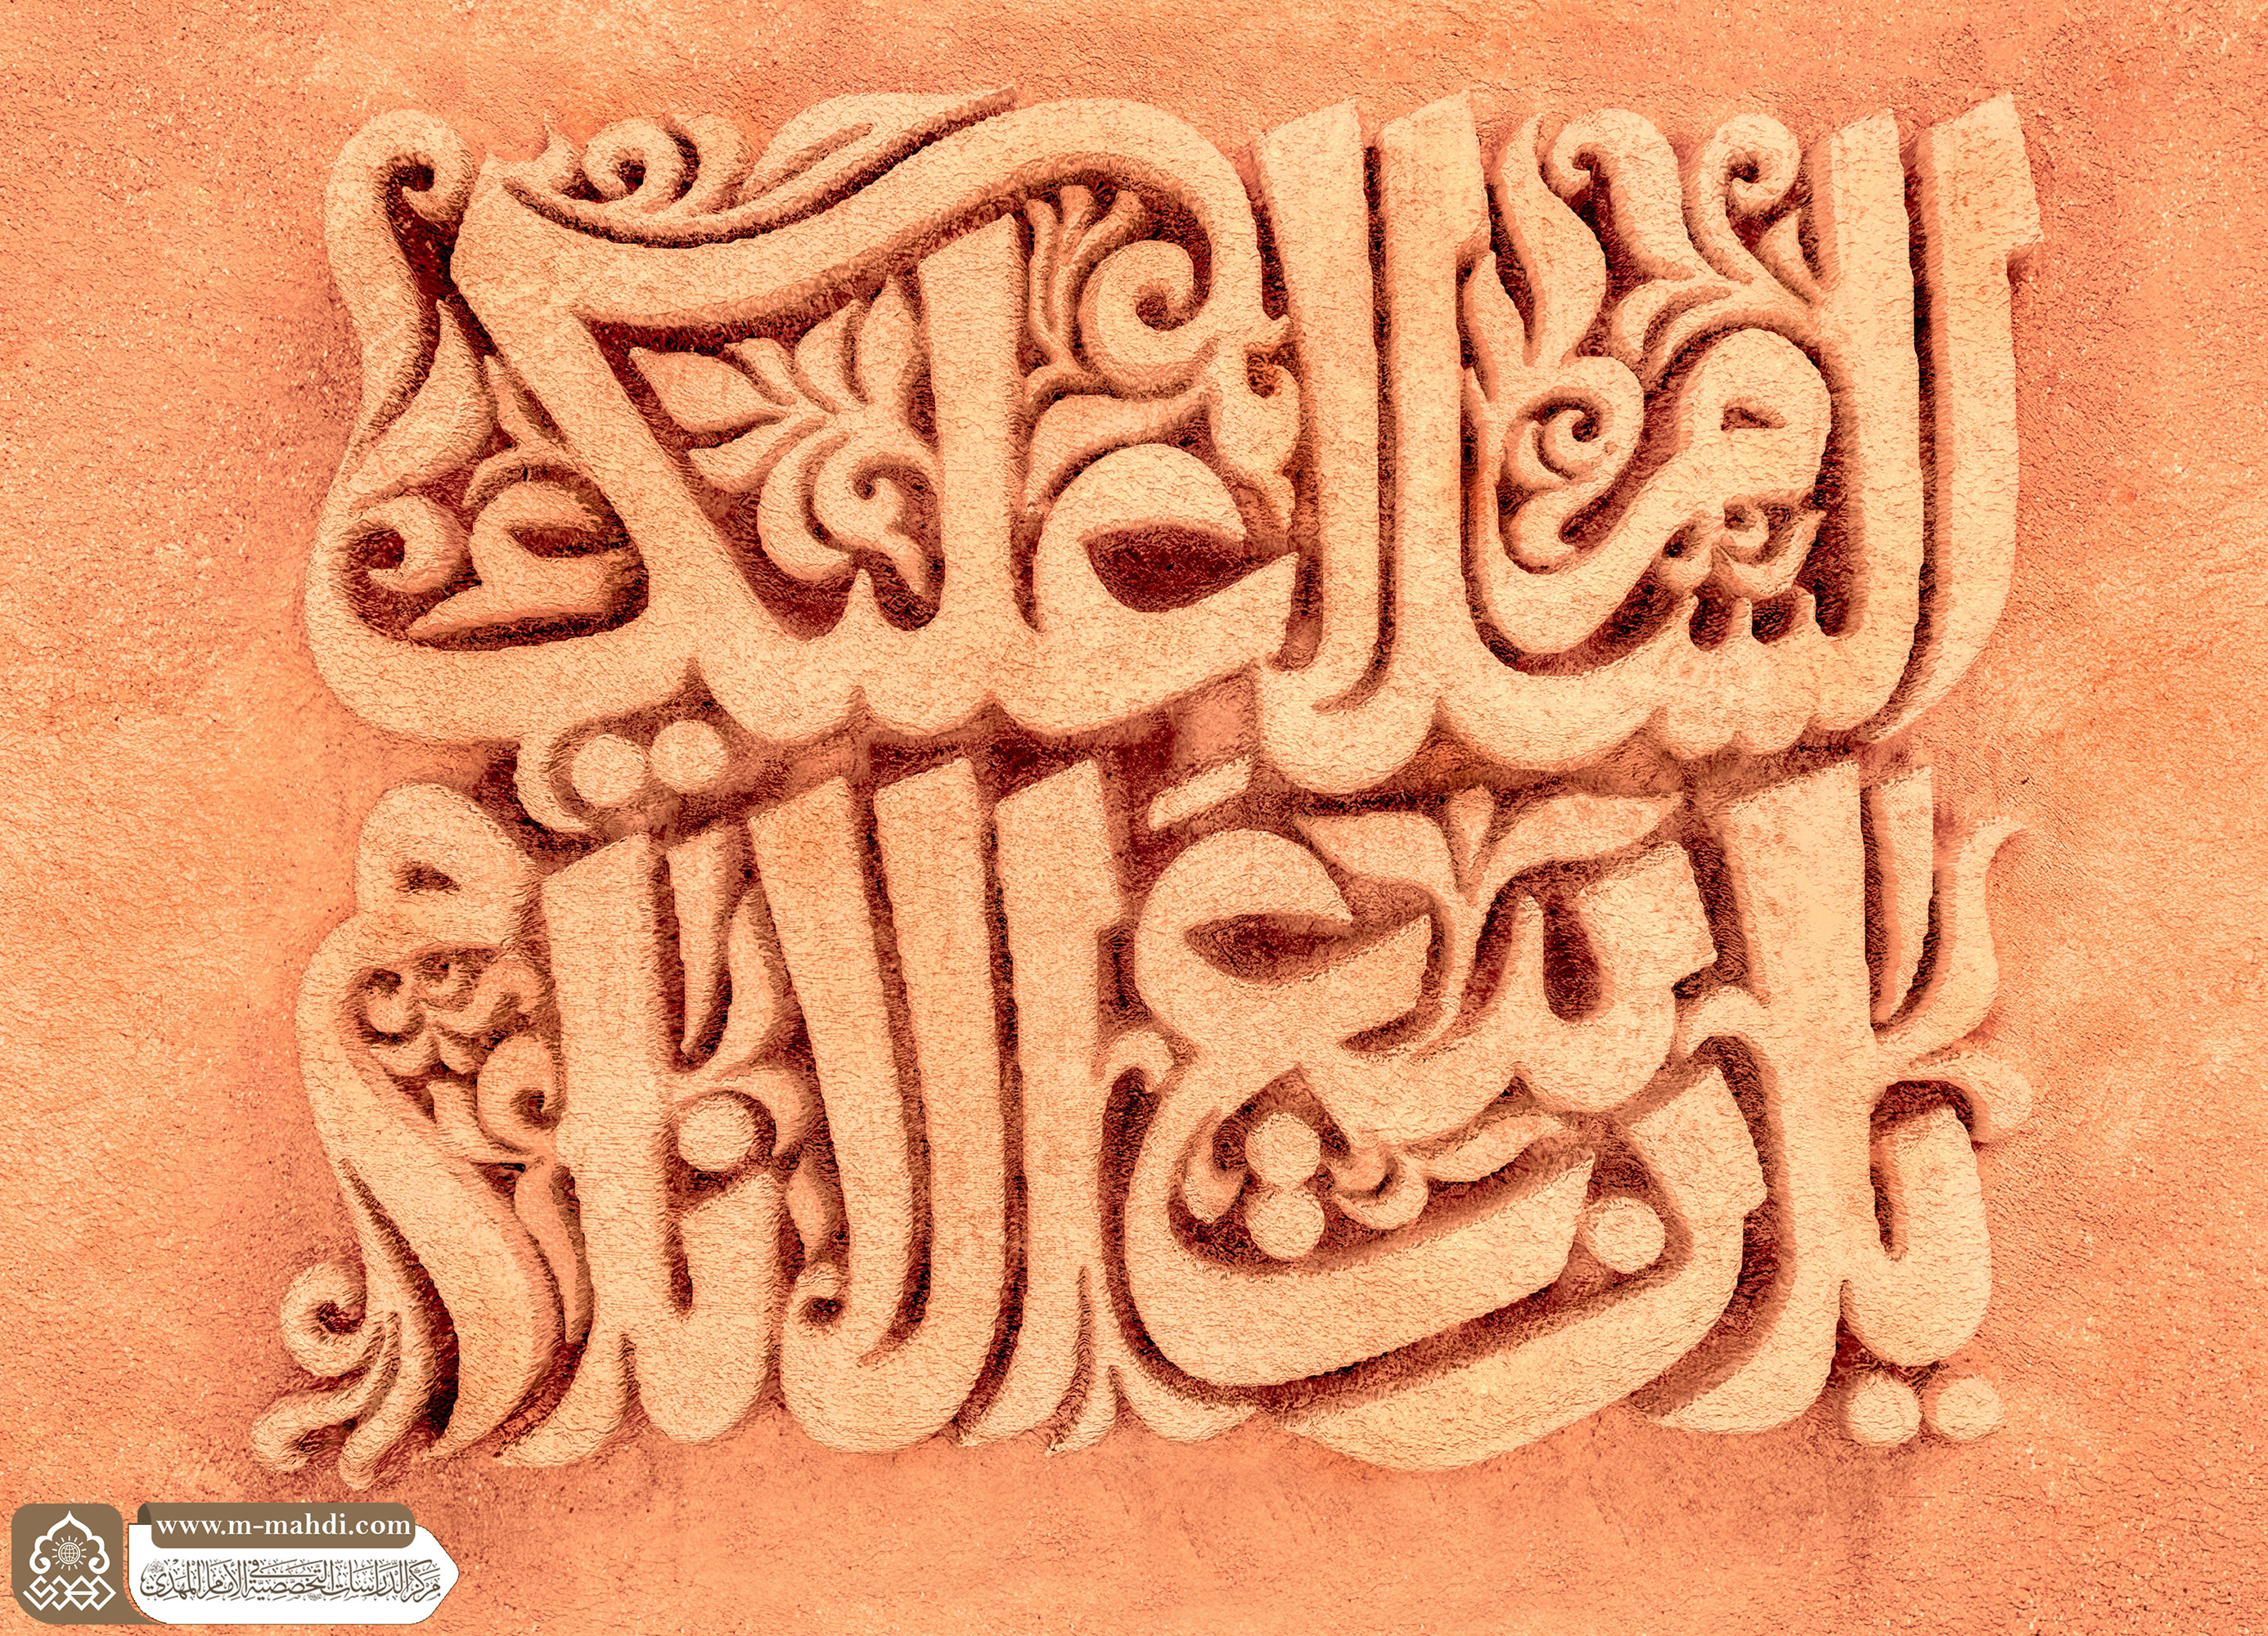 السلام عليك
يا ربيع الأنام
www.m-mahdi.com
مركز الدراسات التخصصية في الإمام المهدي